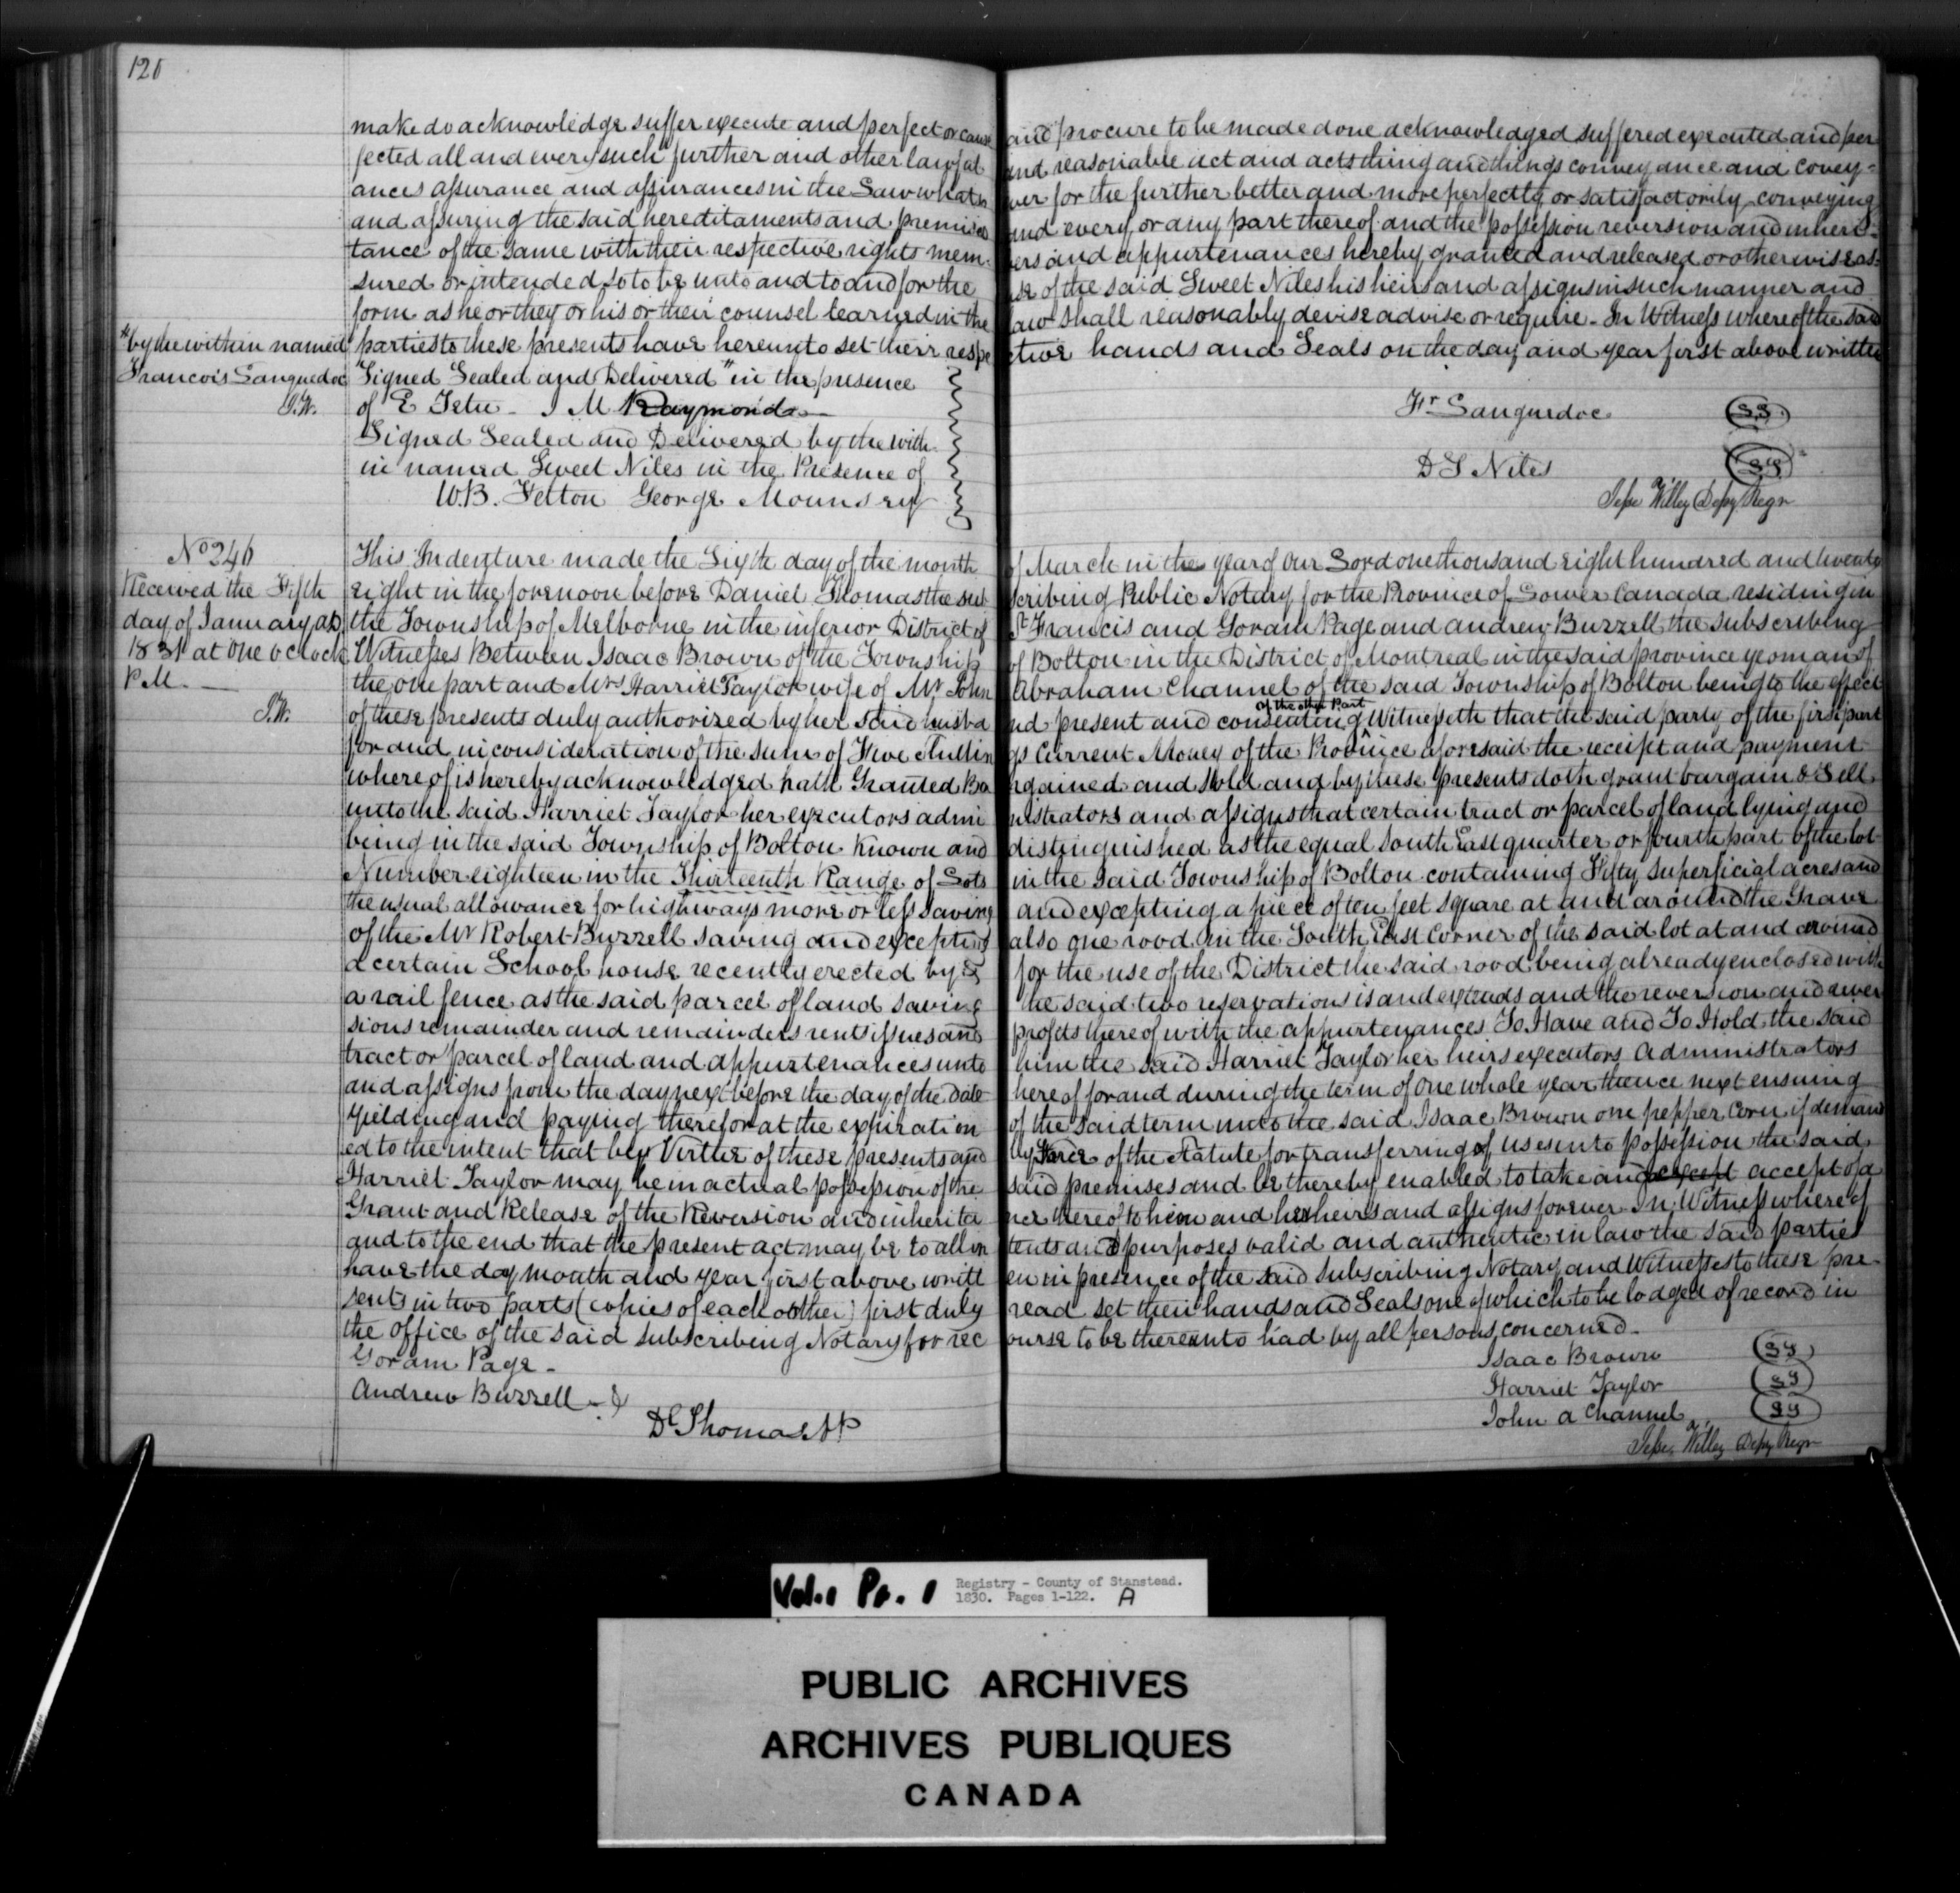 120
make do acknowledge suffer execute and perfect or cause and procure to be made done acknowledged suffered executed and per
fected all and every such further and other lawful and reasonable act and acts thing and things conveyance and covey-
ances assurance and assurances in the Law whatso ever for the further better and more perfectly or satisfactorily conveying
and assuring the said hereditaments and premises and every or any part thereof and the possession reversion and inheri-
tance of the same with their respective rights mem- bers and appurtenances hereby granted and released or otherwise as-
sured or intended so to be unto and to and for the use of the said Sweet Niles his heirs and assigns in such manner and
form as he or they or his or their counsel learned in the Law shall reasonably devise advise or require - In Witness whereof the said
parties to these presents have hereunto set their respe ctive hands and Seals on the day and year first above written
"by the within named
Francois Languedoc
J.W.
Signed Sealed and Delivered " in the presence
of E Tetu - J M Raymond
Signed Sealed and Delivered by the with
in named Sweet Niles in the Presence of
W.B. Felton George Mounsey
Fr Languedoc
D S Niles
Jesse Willey Depy Regr
No 246
Received the Fifth
day of January AD
1831 at One o Clock
P.M. -
J.W.
This Indenture made the Sixth day of the month of March in the year of Our Lord one thousand eight hundred and twenty
eight in the forenoon before Daniel Thomas the sub scribing Public Notary for the Province of Lower Canada residing in
the Township of Melborne in the inferior District of St Francis and Goram Page and Andrew Buzzell the subscribing
Witnesses Between Isaac Brown of the Township of Bolton in the District of Montreal in the said province yeoman of
the one part and Mrs Harriet Taylor wife of Mr John Abraham Channel of the said Township of Bolton being to the effect
of these presents duly authorized by her said husba nd present and consenting of the other Part Witnesseth that the said party of the first part
for and in consideration of the sum of Five Shillin gs Current Money of the Province aforesaid the receipt and payment
whereof is hereby acknowledged hath Granted Ba rgained and Sold and by these presents doth grant bargain & Sell
unto the said Harriet Taylor her executors admi nistrators and assigns that certain tract or parcel of land lying and
being in the said Township of Bolton Known and distinguished as the equal South East quarter or fourth part of the lot
Number eighteen in the Thirteenth Range of Lots in the said Township of Bolton containing Fifty superficial acres and
the usual allowance for highways more or less saving and excepting a piece of ten feet square at and around the Grave
of the Mr Robert Buzzell saving and excepting also one rood in the South East Corner of the said lot at and around
a certain School house recently erected by & for the use of the District the said rood being already enclosed with
a rail fence as the said parcel of land saving the said two reservations is and extends and the reversion and rever
sions remainder and remainders rents issues and profits thereof with the appurtenances To Have and To Hold the said
tract or parcel of land and appurtenances unto him the said Harriet Taylor her heirs executors Administrators
and assigns from the day next before the day of the date hereof for and during the term of one whole year thence next ensuing
Yielding and paying therefor at the expiration of the said term unto the said Isaac Brown one pepper Corn if demand
ed to the intent that by Virtue of these presents and by Force of the Statute for transferring of uses into possession the said
Harriet Taylor may be in actual possession of the said premises and be thereby enabled to take and except accept of a
Grant and Release of the Reversion and inherita nce thereof to him and her heirs and assigns forever In Witness whereof
and to the end that the present act may be to all in tents and purposes valid and authentic in law the said parties
have the day month and year first above writt en in presence of the said subscribing Notary and Witnesses to these pre-
sents in two parts (copies of each other) first duly read set their hands and Seals one of which to be lodged of record in
the office of the said subscribing Notary for rec ourse to be thereunto had by all persons concerned.
Goram Page -
Andrew Buzzell
Dl Thomas NP
Isaac Brown
Harriet Taylor
John A Channel
Jesse Willey Depy Regr
Vol. 1 Pr. 1
Registry - County of Stanstead.
1830. Pages 1-122. A
PUBLIC ARCHIVES
ARCHIVES PUBLIQUES
CANADA